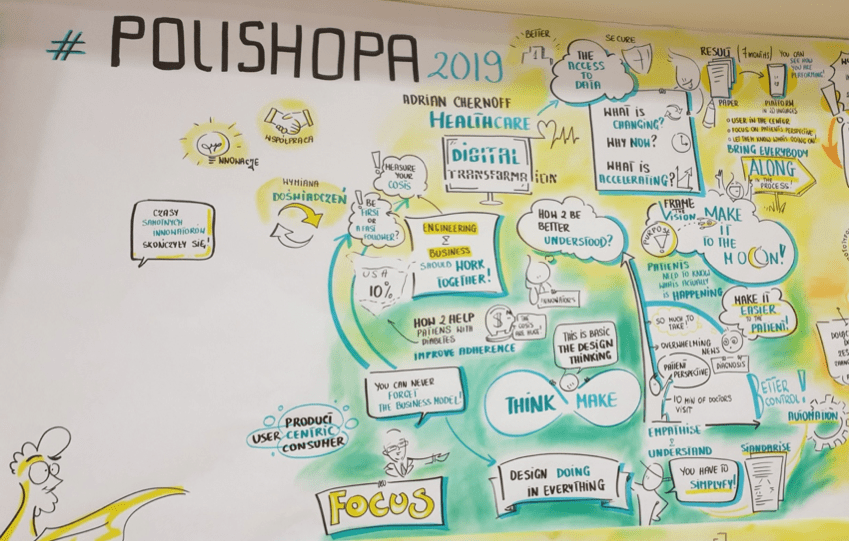 # POLISHOPA 2019
INNOWACJE
WSPÓŁPRACA
WYMIANA
DOŚWIADCZEŃ
CZASY
SAMOTNYCH
INNOWATORÓW
SKOŃCZYŁY SIĘ!
ADRIAN CHERNOFF
HEALTHCARE
DIGITAL
TRANSFORMATION
BETTER
SECURE
THE
ACCESS
TO
DATA
WHAT IS
CHANGING?
WHY NOW?
WHAT IS
ACCELERATING?
RESULT (7 MONTHS)
PAPER
PLATFORM
IN 20 LANGUAGES
YOU CAN
SEE HOW
YOU ARE
PERFORMING!
USER IN THE CENTER
FOCUS ON PATIENTS PERSPECTIVE
LET THEM KNOW WHAT'S GOING ON
BRING EVERYBODY
ALONG
IN THE
PROCESS!
MEASURE
YOUR
COSTS
! BE
FIRST
OR
A FAST
FOLLOWER?
ENGINEERING
&
BUSINESS
SHOULD WORK
TOGETHER!
USA
10%
HOW 2 HELP
PATIENS WITH
DIABETES
IMPROVE ADHERENCE
THE
COSTS
ARE HUGE!
HOW 2 BE
BETTER
UNDERSTOOD?
INNOVATORS
FRAME
THE
VISION
PURPOSE
MAKE
IT
TO THE
MOON!
PATIENTS
NEED TO KNOW
WHAT'S ACTUALLY
IS HAPPENING
MAKE IT
EASIER
TO THE
PATIENT!
SO MUCH TO
TAKE!
OVERWHELMING
NEWS
PATIENT
PERSPECTIVE
DIAGNOSIS
10 MIN OF DOCTORS
VISIT
BETTER
CONTROL!
AUTOMATION
EMPATHISE
&
UNDERSTAND
STANDARISE
YOU HAVE TO
SIMPLYFY!
THIS IS BASIC
THE DESIGN
THINKING
THINK MAKE
YOU CAN NEVER
FORGET
THE BUSINESS MODEL!
PRODUCT
USER CENTRIC
CONSUMER
FOCUS
DESIGN DOING
IN EVERYTHING